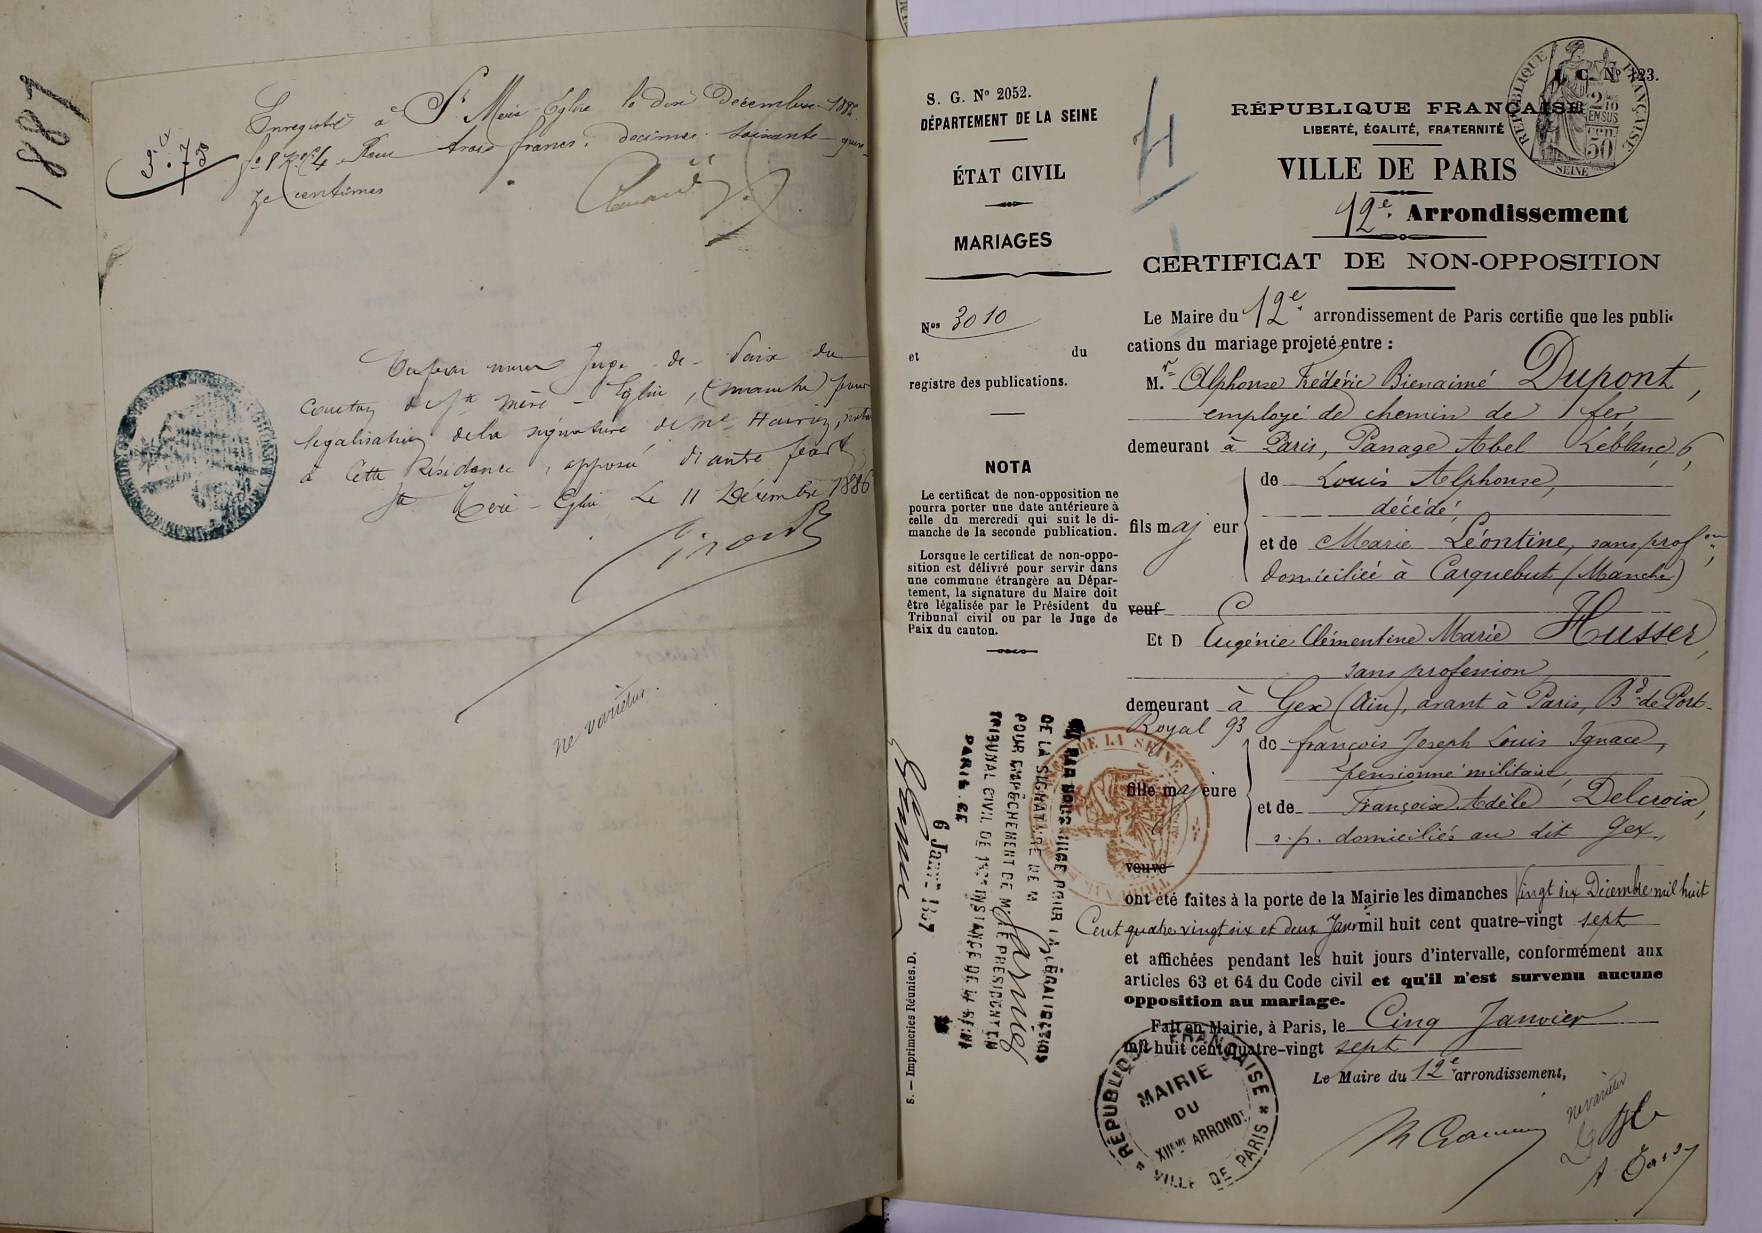 1887
Enregistré à Ste Mère Eglise le dix Décembre 1886
fo 8 Reçu trois francs, décimes soixante-quin-
ze centimes
Vu par nous Juge de Paix du
Canton de Ste Mère-Eglise, (Manche) pour
légalisation de la signature de Me
à cette Résidence, apposée d'autre part
Ste Mère-Eglise Le 11 Décembre 1886
ne varietur.
S. G. No 2052.
DÉPARTEMENT DE LA SEINE
ÉTAT CIVIL
MARIAGES
Nos 3010
et du
registre des publications.
NOTA
Le certificat de non-opposition ne
pourra porter une date antérieure à
celle du mercredi qui suit le di-
manche de la seconde publication.
Lorsque le certificat de non-oppo-
sition est délivré pour servir dans
une commune étrangère au Dépar-
tement, la signature du Maire doit
être légalisée par le Président du
Tribunal civil ou par le Juge de
Paix du canton.
VU PAR NOUS JUGE POUR LA LÉGALISATION
DE LA SIGNATURE DE M
POUR EMPÊCHEMENT DE M. LE PRÉSIDENT EN
TRIBUNAL CIVIL DE 1re INSTANCE DE LA SEINE
PARIS, CE
6 Janv. 1887
S. — Imprimeries Réunies, D.
I. C. No 123.
RÉPUBLIQUE FRANÇAISE
2/10 EN SUS
50
SEINE
RÉPUBLIQUE FRANÇAISE
LIBERTÉ, ÉGALITÉ, FRATERNITÉ
VILLE DE PARIS
12e. Arrondissement
CERTIFICAT DE NON-OPPOSITION
Le Maire du 12e. arrondissement de Paris certifie que les publi-
cations du mariage projeté entre :
M.r Alphonse Frédéric Bienaimé Dupont,
employé de chemin de fer
demeurant à Paris, Passage Abel Leblanc, 6,
de Louis Alphonse,
décédé,
fils majeur
et de Marie Léontine, sans profon,
domiciliée à Carquebut (Manche)
veuf
Et D Eugénie Clémentine Marie Husser,
sans profession,
demeurant à Gex (Ain), avant à Paris, Bd de Port-
Royal 93
de François Joseph Louis Ignace,
pensionné militaire,
fille majeure
et de Françoise Adèle Delcroix,
s. p. domiciliés au dit Gex,
veuve
ont été faites à la porte de la Mairie les dimanches Vingt six Décembre mil huit
Cent quatre vingt six et deux Janv mil huit cent quatre-vingt sept
et affichées pendant les huit jours d'intervalle, conformément aux
articles 63 et 64 du Code civil et qu'il n'est survenu aucune
opposition au mariage.
Fait en Mairie, à Paris, le Cinq Janvier
mil huit cent quatre-vingt sept
Le Maire du 12e arrondissement,
RÉPUBLIQUE FRANÇAISE
MAIRIE
DU
XIIme ARRONDt
VILLE DE PARIS
ne varietur